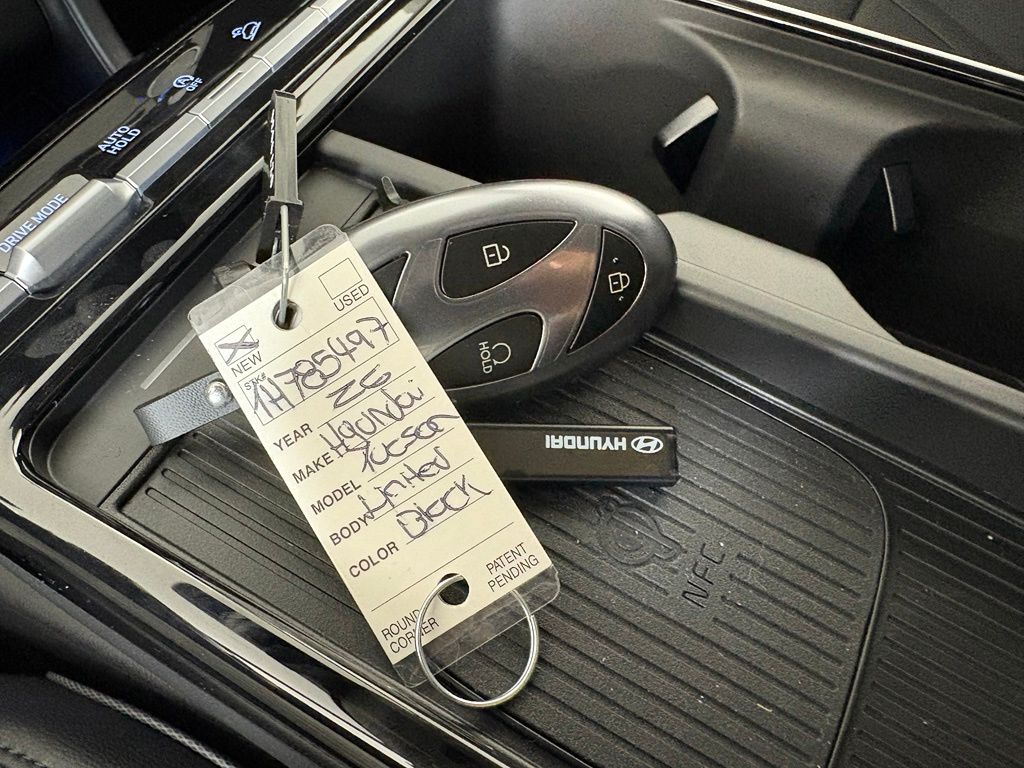 OFF
AUTO
HOLD
DRIVE MODE
USED
NEW
STK#
1H785497
YEAR 26
MAKE Hyundai
MODEL Tucson
BODY Limited
COLOR Black
ROUND
CORNER
PATENT
PENDING
HOLD
HYUNDAI
NFC